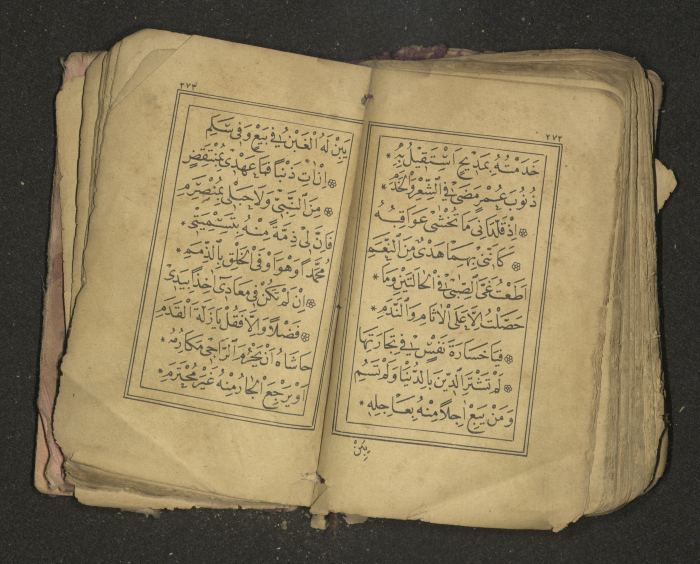 ٢٧٢
خَدَمْتُهُ بِمَدِيحٍ اَسْتَقِيلُ بِهِ *
ذُنُوبَ عُمْرٍ مَضٰى فِى الشِّعْرِ وَالْخِدَمِ *
۞ اِذْ قَلَّدَانِىَ مَا تَخْشٰى عَوَاقِبُهُ
۞ كَاَنَّنِى بِهِمَا هَدْىٌ مِنَ النَّعَمِ
اَطَعْتُ غَىَّ الصِّبٰى فِى الْحَالَتَيْنِ وَمَا *
حَصَلْتُ اِلَّا عَلَى الْاٰثَامِ وَالنَّدَمِ *
۞ فَيَاخَسَارَةَ نَفْسٍ فِى تِجَارَتِهَا
۞ لَمْ تَشْتَرِ الدِّينَ بِالدُّنْيَا وَلَمْ تَسُمِ
وَمَنْ يَبِعْ اٰجِلًا مِنْهُ بِعَاجِلِهِ *
يَبِنْ
٢٧٣
يَبِنْ لَهُ الْغَبْنُ فِى بَيْعٍ وَفِى سَلَمِ
۞ اِنْ اٰتِ ذَنْبًا فَمَا عَهْدِى بِمُنْتَقِضٍ
۞ مِنَ النَّبِىِّ وَلَا حَبْلِى بِمُنْصَرِمِ
فَاِنَّ لِى ذِمَّةً مِنْهُ بِتَسْمِيَتِى *
مُحَمَّدًا وَهُوَ اَوْفَى الْخَلْقِ بِالذِّمَمِ *
۞ اِنْ لَمْ تَكُنْ فِى مَعَادِى اٰخِذًا بِيَدِى
۞ فَضْلًا وَاِلَّا فَقُلْ يَازَلَّةَ الْقَدَمِ
حَاشَاهُ اَنْ يَحْرِمَ الرَّاجِى مَكَارِمَهُ *
اَوْ يَرْجِعَ الْجَارُ مِنْهُ غَيْرَ مُحْتَرَمِ *